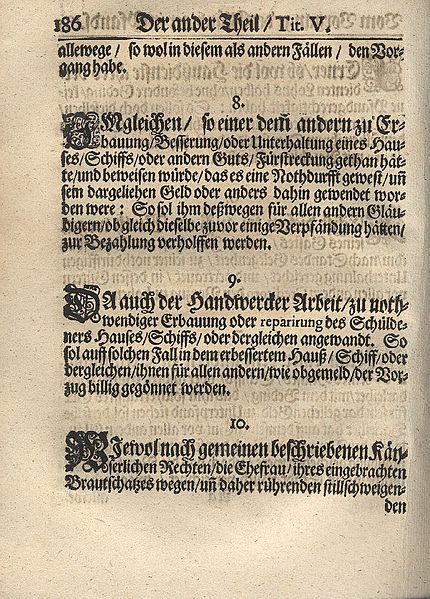 186 Der ander Theil / Tit. V.
allewege / so wol in diesem als andern Fällen / den Vor-
gang habe.
8.
IMgleichen / so einer dem andern zu Er-
bauung / Besserung / oder Unterhaltung eines Hau-
ses / Schiffs / oder andern Guts / Fürstreckung gethan hät-
te / und beweisen würde / das es eine Nothdurfft gewest / uñ
sein dargeliehen Geld oder anders dahin gewendet wor-
den were : So sol ihm deßwegen für allen andern Gläu-
digern / ob gleich dieselbe zuvor einige Verpfändung hätten /
zur Bezahlung verholffen werden.
9.
DA auch der Handwercker Arbeit / zu noth-
wendiger Erbauung oder reparirung des Schülde-
ners Hauses / Schiffs / oder dergleichen angewandt. So
sol auff solchen Fall in dem erbessertem Hauß / Schiff / oder
dergleichen / ihnen für allen andern / wie obgemeld / der Vor-
zug billig gegönnet werden.
10.
WIewol nach gemeinen beschriebenen Käy-
serlichen Rechten / die Ehefrau / ihres eingebrachten
Brautschatzes wegen / uñ daher rührenden stillschweigen-
den